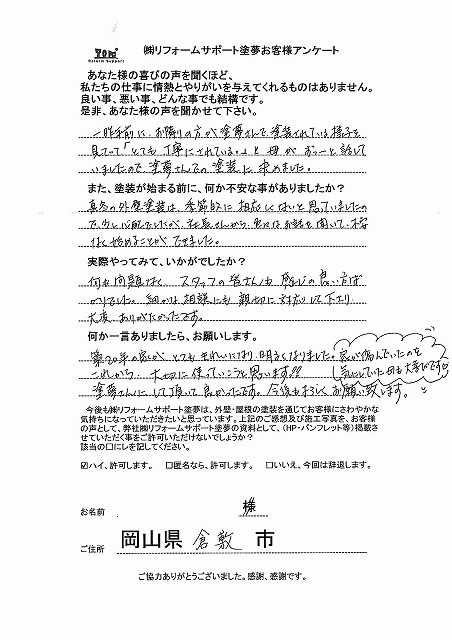 TOM
Reform Support
㈱リフォームサポート塗夢お客様アンケート
あなた様の喜びの声を聞くほど、
私たちの仕事に情熱とやりがいを与えてくれるものはありません。
良い事、悪い事、どんな事でも結構です。
是非、あなた様の声を聞かせて下さい。
一昨年前に、お隣りの方が塗夢さんで塗装されている様子を
見ていて「とても丁寧にされている。」と母がずっと話して
いましたので、塗夢さんでの塗装に決めました。
また、塗装が始まる前に、何か不安な事がありましたか？
真冬の外壁塗装は、季節的に相応しくないと思っていましたの
で、少し心配でしたが、社長さんから、色々お話を聞いて、不安
なく始めることができました。
実際やってみて、いかがでしたか？
何も問題なく、スタッフの皆さんも感じの良い方ば
かりでした。細かな相談にも親切に対応して下さり、
大変ありがたかったです。
何か一言ありましたら、お願いします。
築20年の家が、とてもきれいになり、明るくなりました。
これから、大切に使っていこうと思います!!
塗夢さんにして頂いて良かったです。今後もよろしくお願い致します。
家が傷んでいたのを
気にしていた母も大喜びです
今後も㈱リフォームサポート塗夢は、外壁・屋根の塗装を通じてお客様にさわやかな
気持ちになっていただきたいと思っています。上記のご感想及び施工写真を、お客様
の声として、弊社㈱リフォームサポート塗夢の資料として、（HP・パンフレット等）掲載さ
せていただく事をご許可いただけないでしょうか？
該当の口にレを記してください。
☑ハイ、許可します。 □匿名なら、許可します。 □いいえ、今回は辞退します。
お名前 様
ご住所 岡山県 倉敷 市
ご協力ありがとうございました。感謝、感謝です。